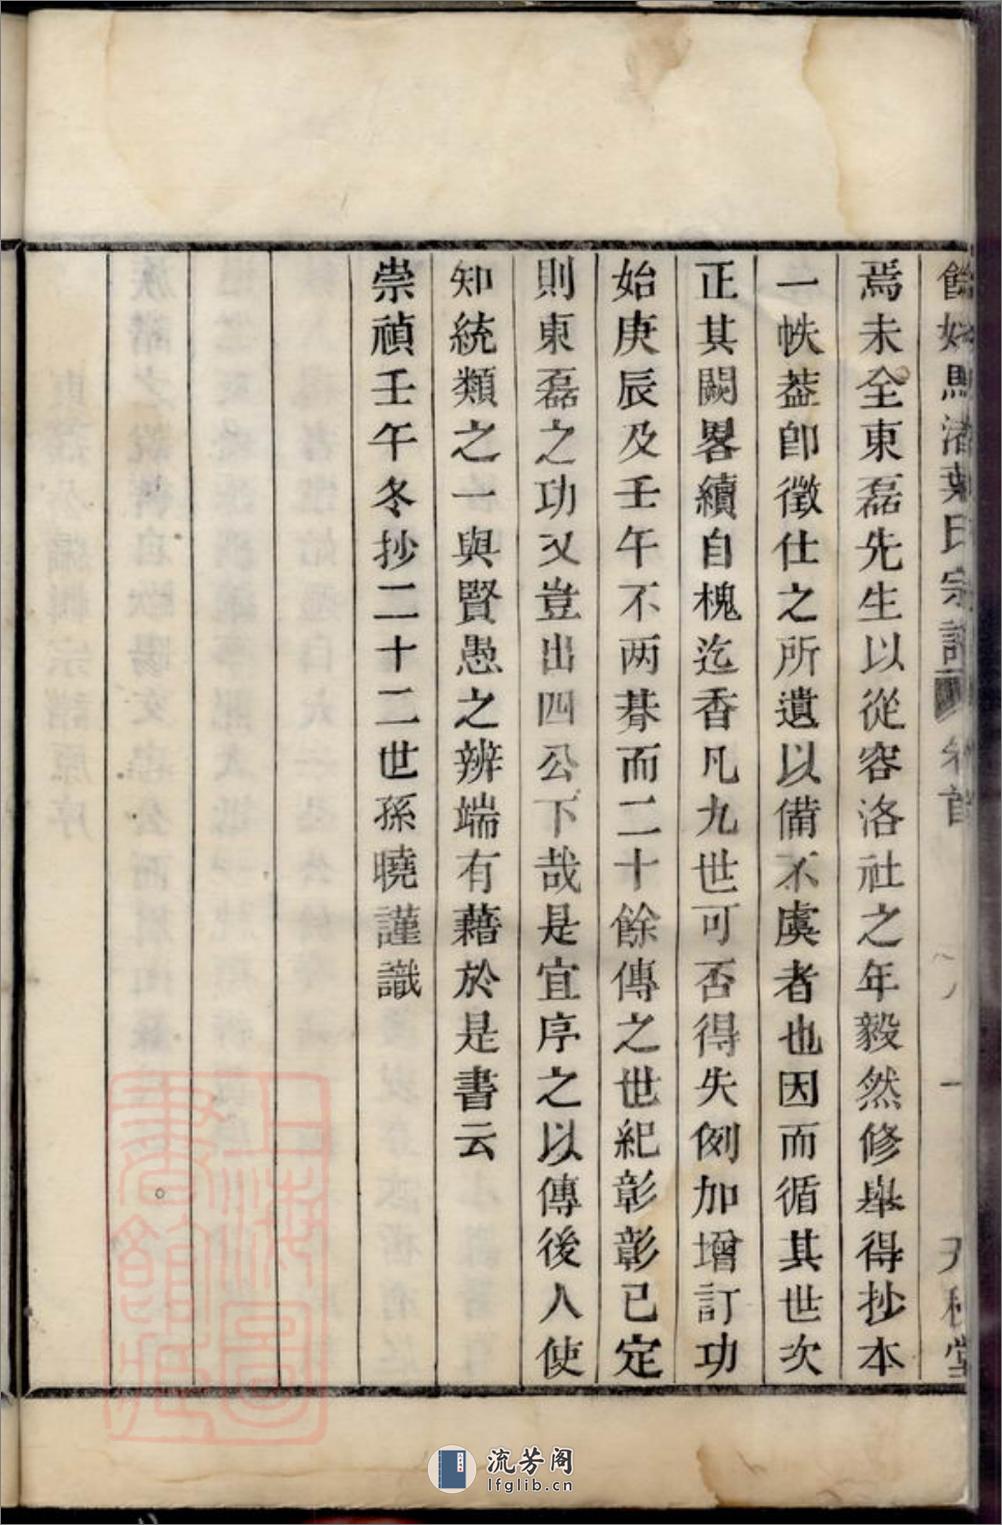 餘姚馬渚葉氏宗譜 卷首 一
焉未全東磊先生以從容洛社之年毅然修舉得抄本
一帙葢卽徵仕之所遺以備不虞者也因而循其世次
正其闕畧續自槐迄香凡九世可否得失例加增訂功
始庚辰及壬午不两朞而二十餘傳之世紀彰彰已定
則東磊之功又豈出四公下哉是宜序之以傳後人使
知統類之一與賢愚之辨端有藉於是書云
崇禎壬午冬抄二十二世孫曉謹識
上海圖書館藏
流芳阁
lfglib.cn